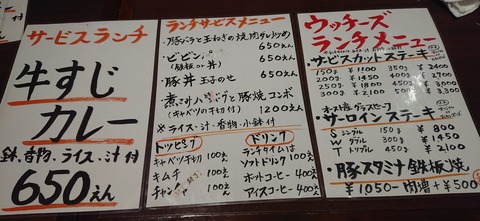 サービスランチ
牛すじ
カレー
鉢、香物、ライス、汁付
650えん
ランチサービスメニュー
・豚バラと玉ねぎの焼肉ダレ炒め
650えん
・ビビンバ
650えん
・豚丼 玉子のせ
650えん
豚焼コンボ
(キャベツの千切付) 1200えん
※ライス・汁・香物・小鉢付
トッピング
キャベツ千切 100えん
キムチ 100えん
ドリンク
ランチタイムは
ソフトドリンク 100えん
ホットコーヒー 400えん
アイスコーヒー 400えん
ウッチーズ
ランチメニュー
・サービスカットステーキ
150g ¥1100 350g ¥2400
200g ¥1450 400g ¥2700
250g ¥1800 450g ¥3000
300g ¥2100 500g ¥3300
・サーロインステーキ
S シングル 150g ¥800
W ダブル 300g ¥1450
T トリプル 450g ¥2100
・豚スタミナ鉄板焼
¥1050- 肉増+¥500